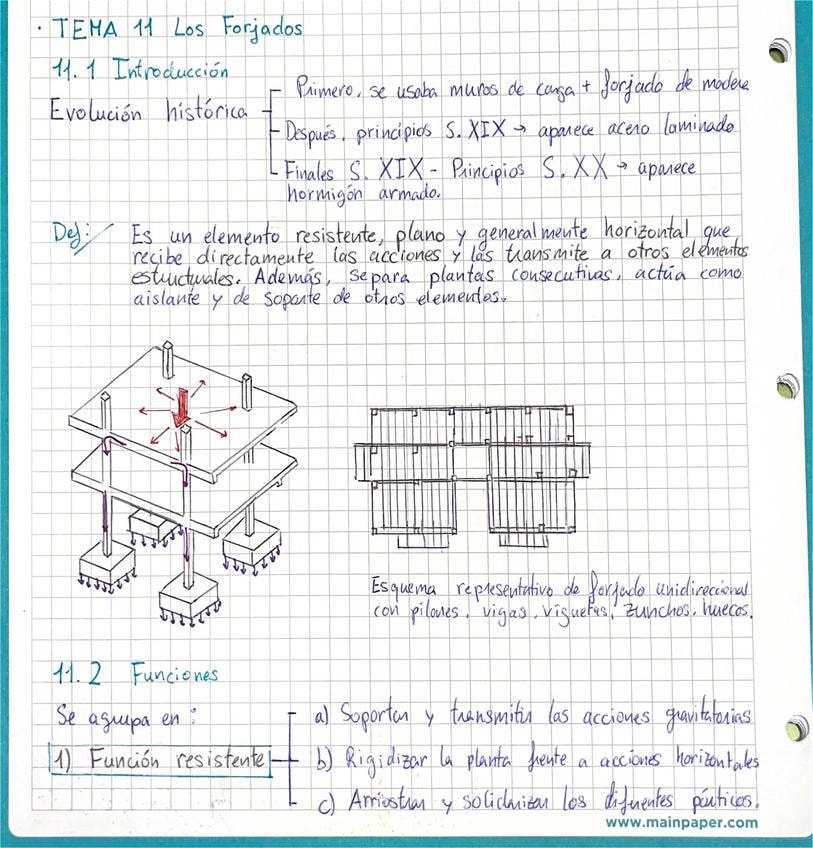 · TEMA 11 Los Forjados
11.1 Introducción
Evolución histórica
Primero, se usaba muros de carga + forjado de madera
Después, principios S. XIX → aparece acero laminado
Finales S. XIX - Principios S. XX → aparece
hormigón armado.
Def:
Es un elemento resistente, plano y generalmente horizontal que
recibe directamente las acciones y las transmite a otros elementos
estructurales. Además, separa plantas consecutivas, actúa como
aislante y de soporte de otros elementos.
Esquema representativo de forjado unidireccional
con pilones, vigas, viguetas, zunchos, huecos.
11.2 Funciones
Se agrupa en:
1) Función resistente
a) Soportar y transmitir las acciones gravitatorias
b) Rigidizar la planta frente a acciones horizontales
c) Arriostrar y solidarizar los diferentes pórticos.
www.mainpaper.com